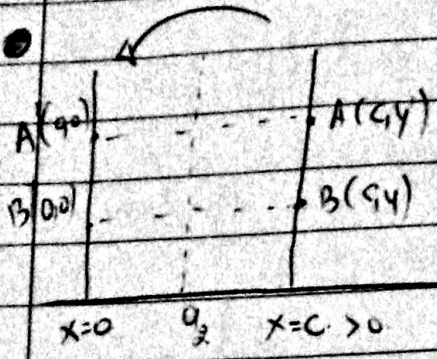 A(0,0) A(C,y)
B(0,0) B(C,y)
x=0 a/2 x=C >0